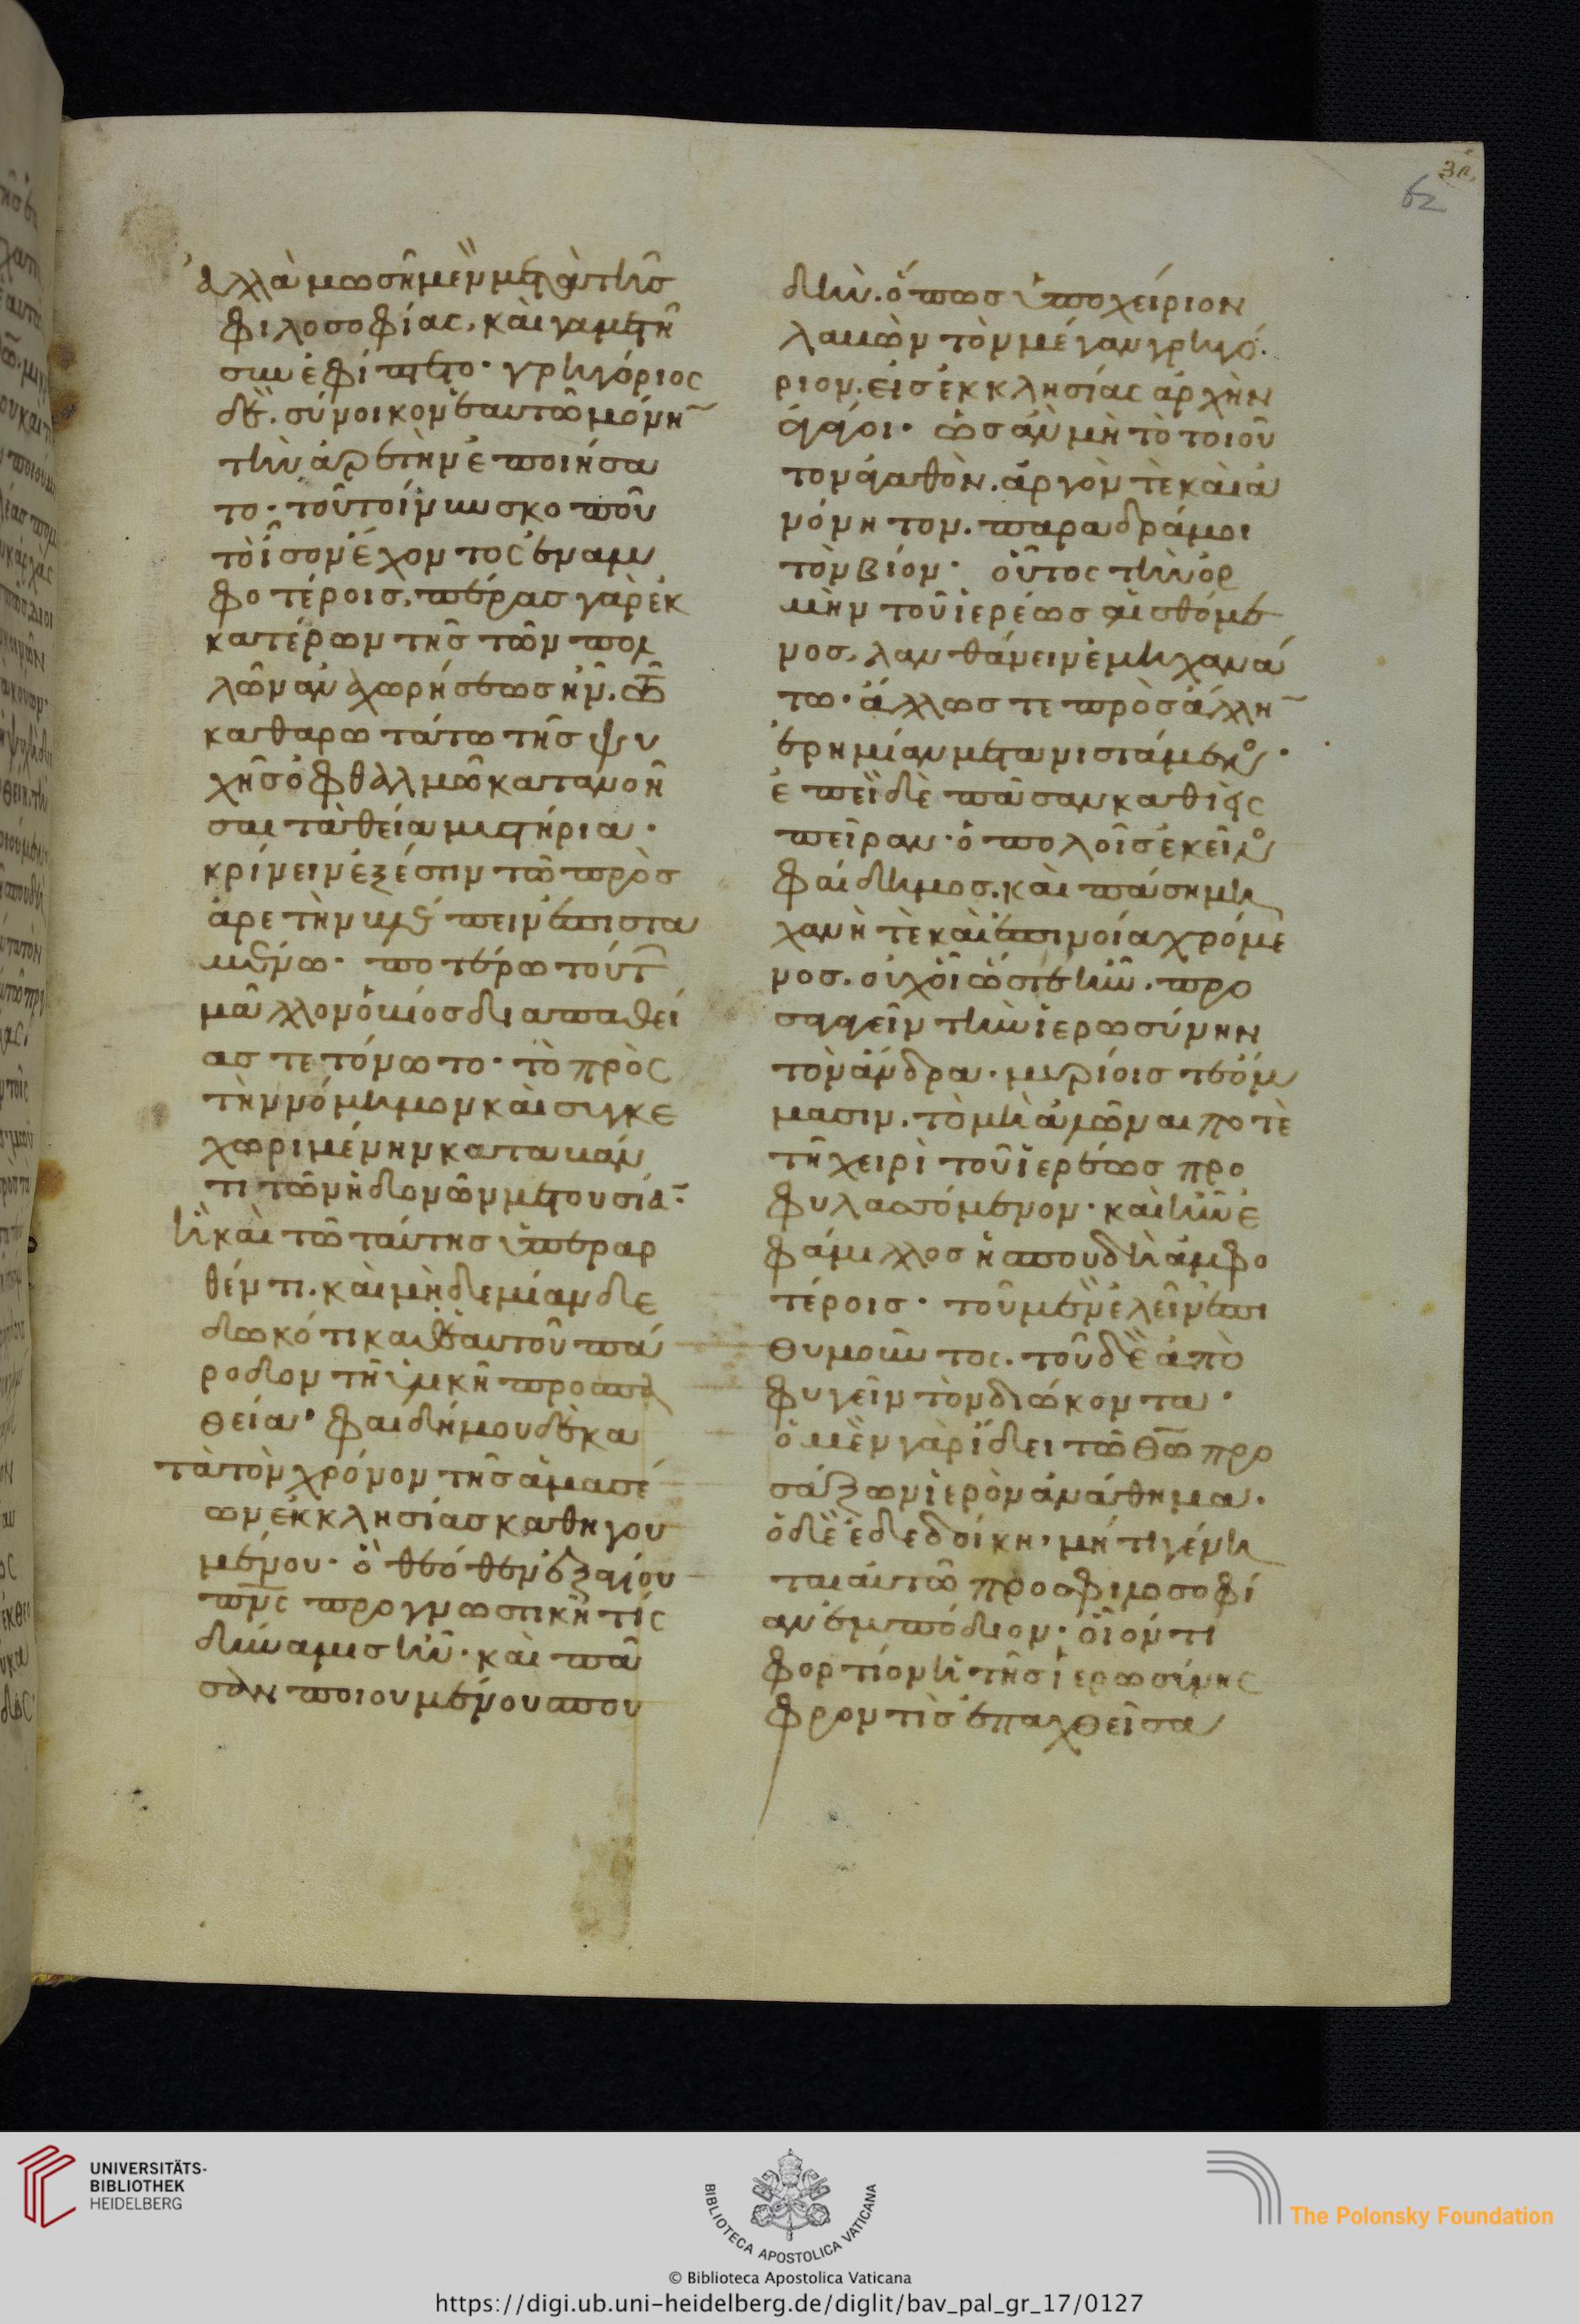 ξβ
62
ἀλλὰ μωσῆ μὲν μετὰ τῆσ
φιλοσοφίας, καὶ γαμετὴ
συνεφίπετο· γρηγόριος
δὲ. σύνοικον ἑαυτῶ μόνη
τὴν ἀρετὴν ἐποιήσα
το· τοῦ τοίνυν σκοποῦ
τὸ ἴσον ἔχοντος ἐν ἀμ
φοτέροισ, πέρας γὰρ ἑκ
κατέρων τῆς τῶν πολ
λῶν ἀναχωρήσεωσ ἦν. τὸ
καθαρωτάτω τῆσ ψυ
χῆσ ὀφθαλμῶ κατανοῆ
σαι τὰ θεία μυστήρια·
κρίνειν ἔξεστιν τῶ πρὸσ
ἀρετὴν βλέπειν ἐπιστα
μένω· ποτέρω τούτ
μᾶλλον ὁ βίος δι ἀπαθεί
ασ τετόνωτο· τὸ πρὸς
τὴν νόμιμον καὶ συγκε
χωριμένην καταβάν
τι τῶν ἡδονῶν μετουσία
ἢ καὶ τῶ ταύτησ ὑπεραρ
θέντι. καὶ μὴδεμίαν δε
δωκότι καθ ἑαυτοῦ πά
ροδον τῆ ὑλικῆ προσπα
θεία· φαιδήμου δὲ κα
τὰ τὸν χρόνον τῆσ ἀμασέ
ων ἐκκλησίασ καθηγου
μένου· ὧ θεόθεν ἐξ ἁγίου
πνς προγνωστική τίς
δύναμισ ἦν· καὶ πᾶ
σαν ποιουμένου σπου
δὴν. ὅπωσ ὑποχείριον
λαβὼν τὸν μέγαν γρηγό
ριον. εἰσ ἐκκλησίας ἀρχὴν
ἀγάγοι· ὡσ ἂν μὴ τὸ τοιοῦ
τον ἀγαθὸν. ἀργὸν τὲ καὶ ἀ
νόνητον. παραδράμοι
τὸν βίον· οὗτος τὴν ὁρ
μὴν τοῦ ἱερέωσ αἰσθόμε
νοσ, λανθάνειν ἐμηχανᾶ
το· ἄλλωσ τε πρὸσ ἄλλη
ἐρημίαν μετανιστάμενο·
ἐπεὶ δὲ πᾶσαν καθεὶς
πεῖραν· ὁ πολοῖσ ἐκεῖνο
φαίδημοσ. καὶ πάση μη
χανῆ τὲ καὶ ἐπινοία χρόμε
νοσ. οὐχ οἷόσ τε ἦν. προ
σαγαγεῖν τὴν ἱερωσύνην
τὸν ἄνδρα. μυρίοισ τε ὄμ
μασιν. τὸ μὴ ἁλῶναι ποτὲ
τῆ χειρὶ τοῦ ἱερέωσ προ
φυλασσόμενον· καὶ ἦν ἐ
φάμιλλοσ ἡ σπουδὴ ἀμφο
τέροισ. τοῦ μὲν ἑλεῖν ἐπι
θυμοῦντος. τοῦ δὲ ἀπὸ
φυγεῖν τὸν διώκοντα·
ὁ μὲν γὰρ ἴδει τῶ θῶ προ
σάξων ἱερὸν ἀνάθημα.
ὁ δὲ ἐδεδοίκη, μή τι γένη
ται αὐτῶ πρὸσ φιλοσοφί
αν ἐμπόδιον· οἷόν τι
φορτίον ἡ τῆσ ἱερωσύνης
φροντὶσ ἐπαχθεῖσα
UNIVERSITÄTS-
BIBLIOTHEK
HEIDELBERG
BIBLIOTECA APOSTOLICA VATICANA
The Polonsky Foundation
© Biblioteca Apostolica Vaticana
https://digi.ub.uni-heidelberg.de/diglit/bav_pal_gr_17/0127